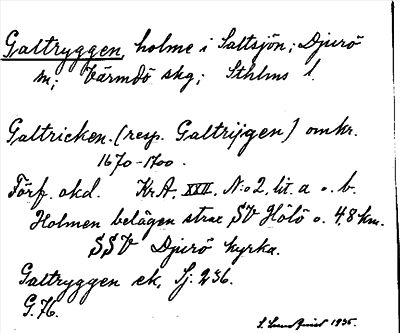 Galtryggen, holme i Saltsjön; Djurö
sn; Värmdö skg; Sthlms l.
Galtricken. (resp. Galtrÿgen) omkr.
1670-1700.
Förf. okd. Kr.A. XXII, N:o 2, lit. a o. b.
Holmen belägen strax SV Hölö o. 4,8 km.
SSV Djurö kyrka.
Galtryggen ek, Sj: 236.
G. 76.
1935.